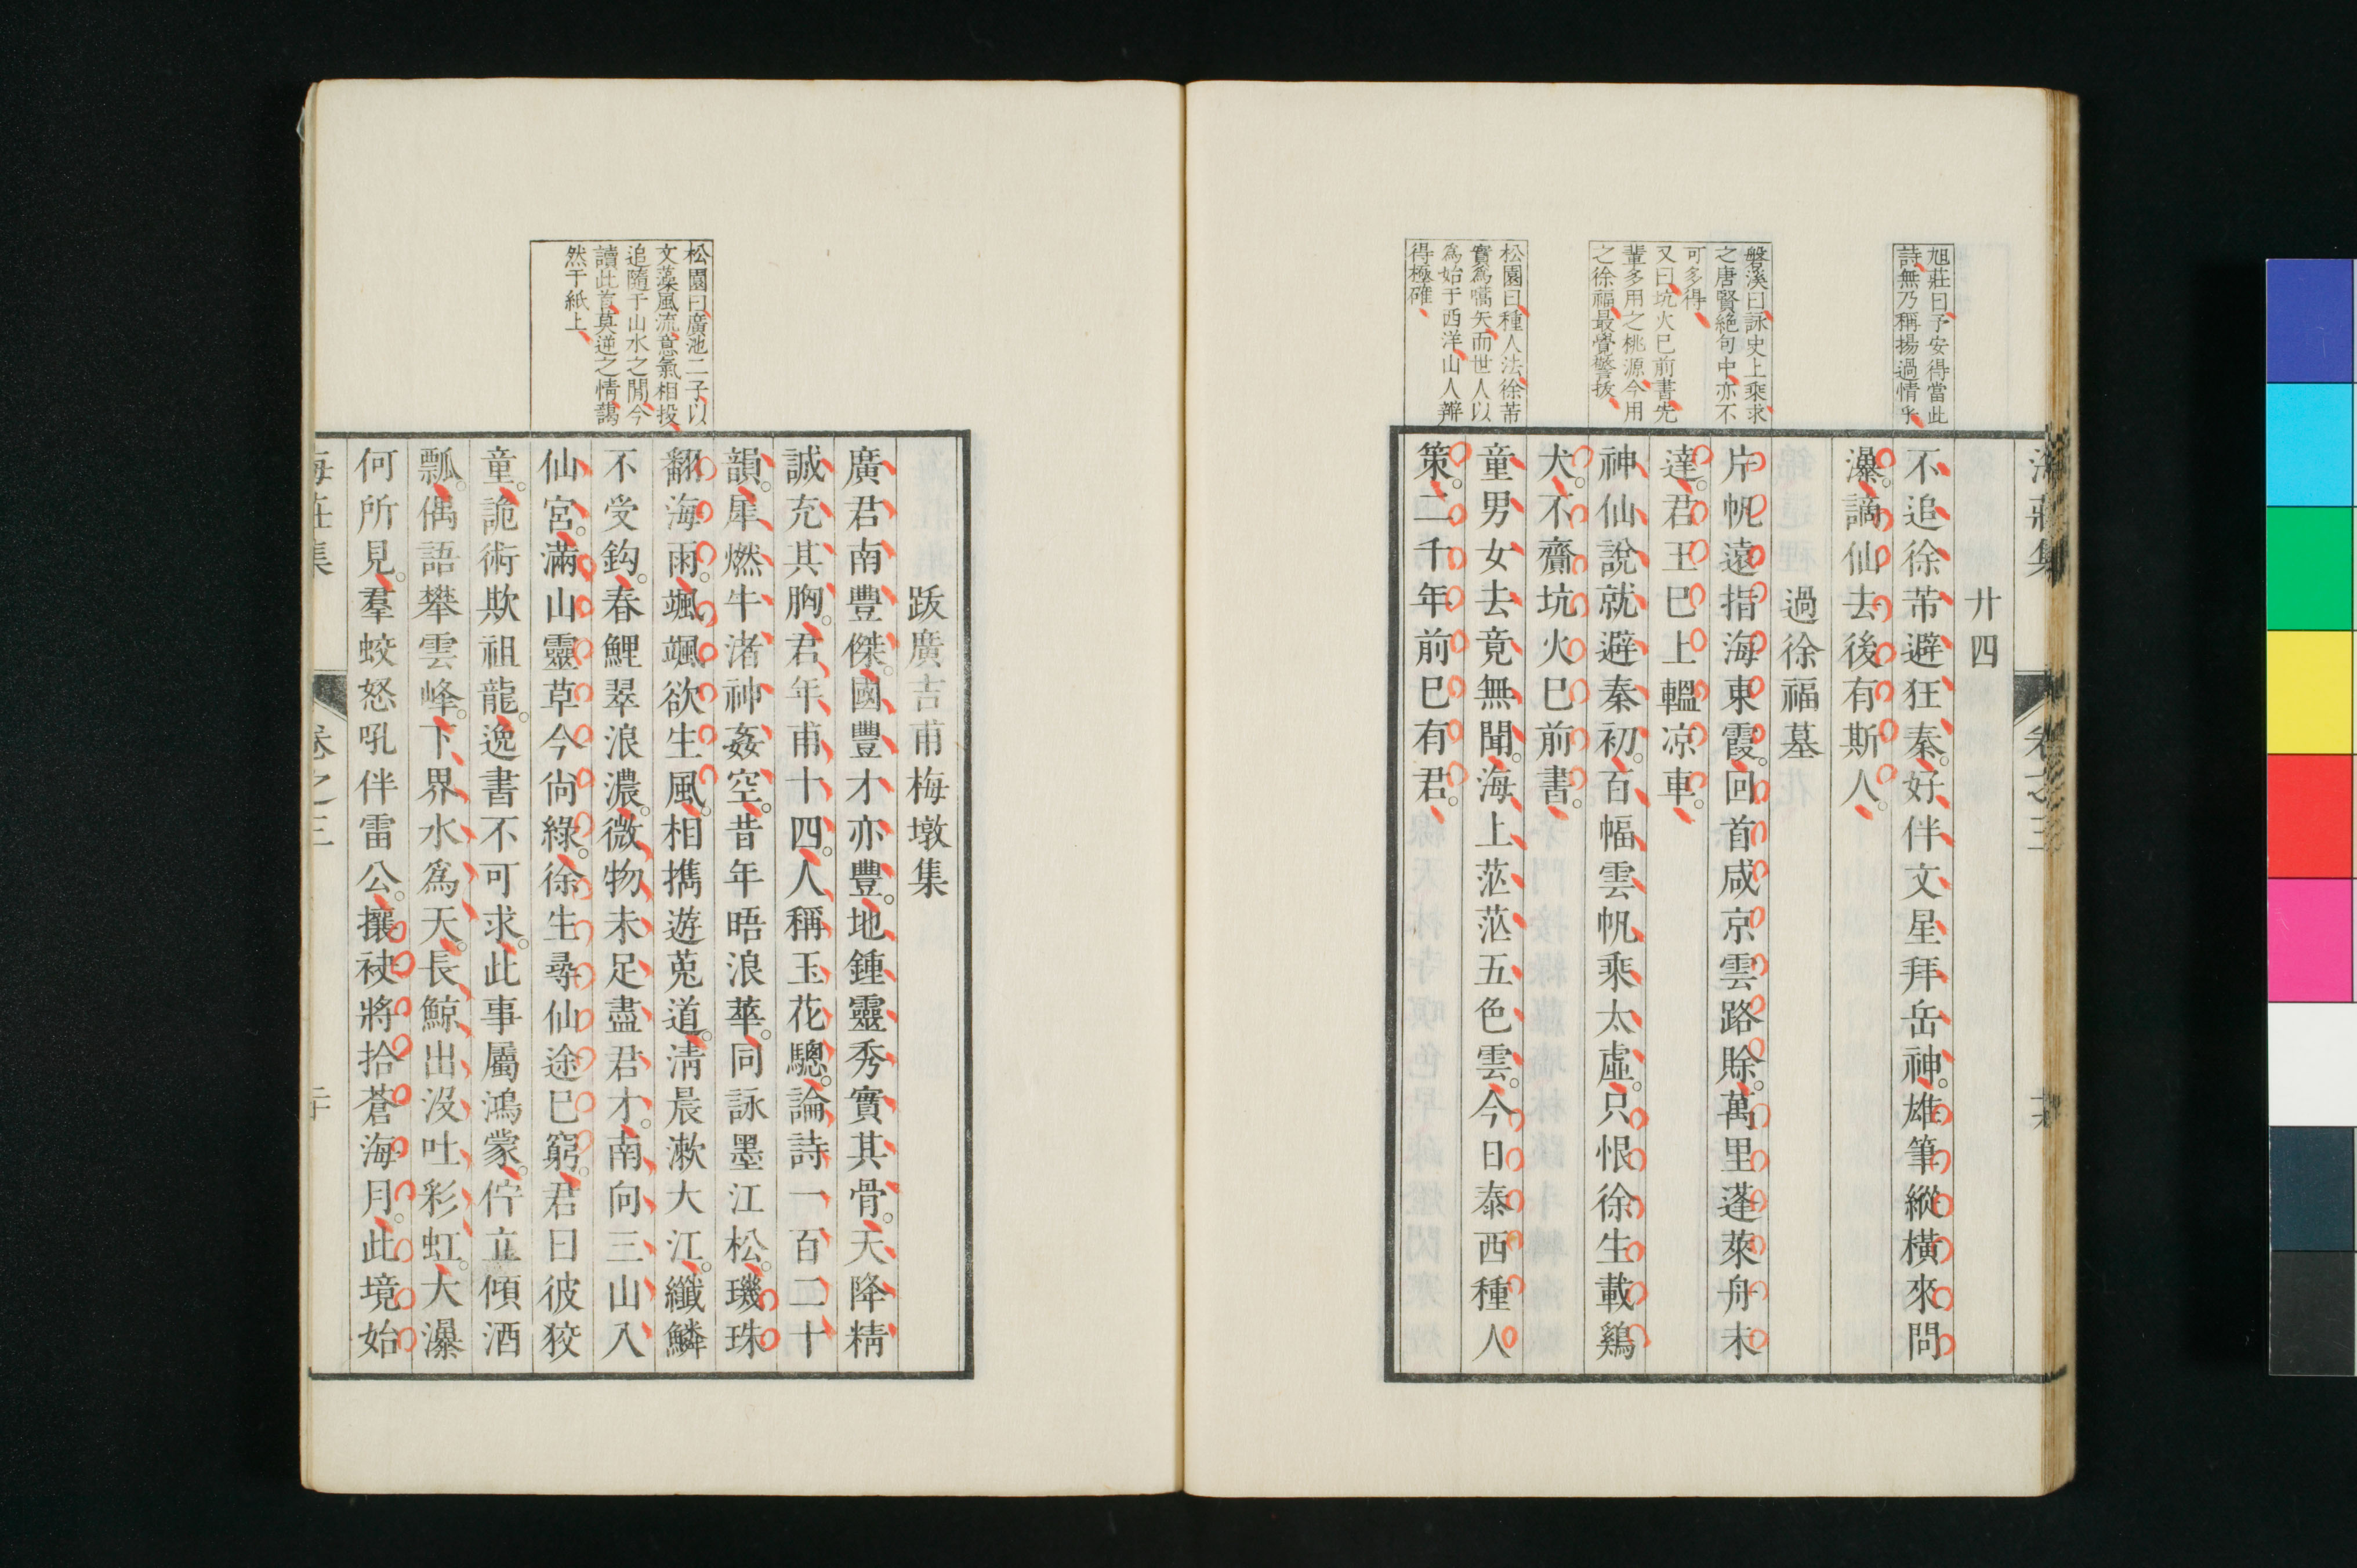 海莊集 卷之三
廿四
不追徐芾避狂秦。好伴文星拜岳神。雄筆縱橫來問
瀑。謫仙去後有斯人。
過徐福墓
片帆遠指海東霞。回首咸京雲路賖。萬里蓬萊舟未
達。君王已上轀凉車。
神仙說就避秦初。百幅雲帆乘太虛。只恨徐生載鷄
犬。不齎坑火已前書。
童男女去竟無聞。海上茫茫五色雲。今日泰西種人
策。二千年前已有君。
旭莊曰予安得當此
詩無乃稱揚過情乎
磐溪曰詠史上乘求
之唐賢絕句中亦不
可多得
又曰坑火已前書先
輩多用之桃源今用
之徐福最覺警拔
松園曰種人法徐芾
實爲嚆矢而世人以
爲始于西洋山人辨
得極確
跋廣吉甫梅墩集
廣君南豐傑。國豐才亦豐。地鍾靈秀實其骨。天降精
誠充其胸。君年甫十四。人稱玉花驄。論詩一百二十
韻。犀燃牛渚神姦空。昔年晤浪華。同詠墨江松。璣珠
翻海雨。颯颯欲生風。相攜遊莵道。清晨漱大江。纖鱗
不受鈎。春鯉翠浪濃。微物未足盡君才。南向三山入
仙宮。滿山靈草今尙綠。徐生尋仙途已窮。君曰彼狡
童。詭術欺祖龍。逸書不可求。此事屬鴻蒙。佇立傾酒
瓢。偶語攀雲峰。下界水爲天。長鯨出沒吐彩虹。大瀑
何所見。羣蛟怒吼伴雷公。攘袂將拾蒼海月。此境始
松園曰廣池二子以
文藻風流意氣相投
追隨于山水之閒今
讀此首莫逆之情藹
然于紙上
海莊集 卷之三 二十